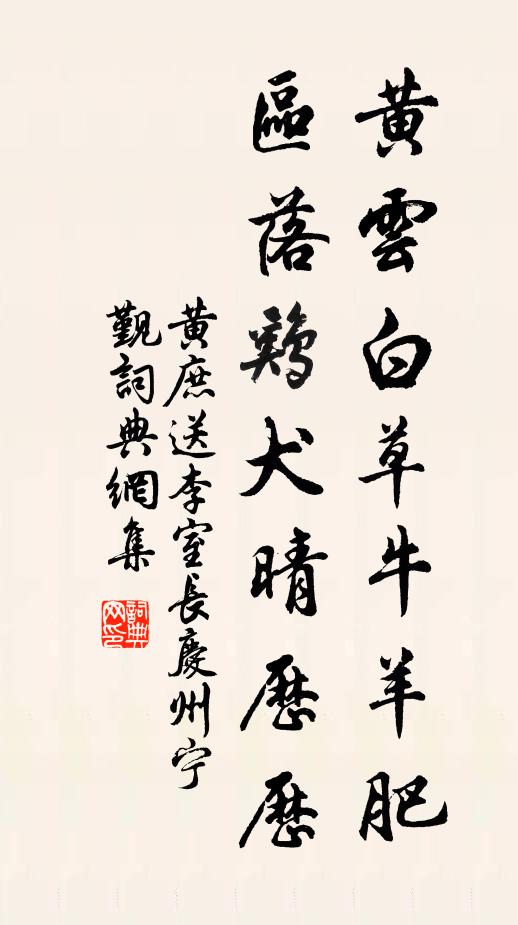 黄雲白草牛羊肥
區落鷄犬晴歷歷
黄庶送李室長慶州宁
觐詞典網集
詞典
网印